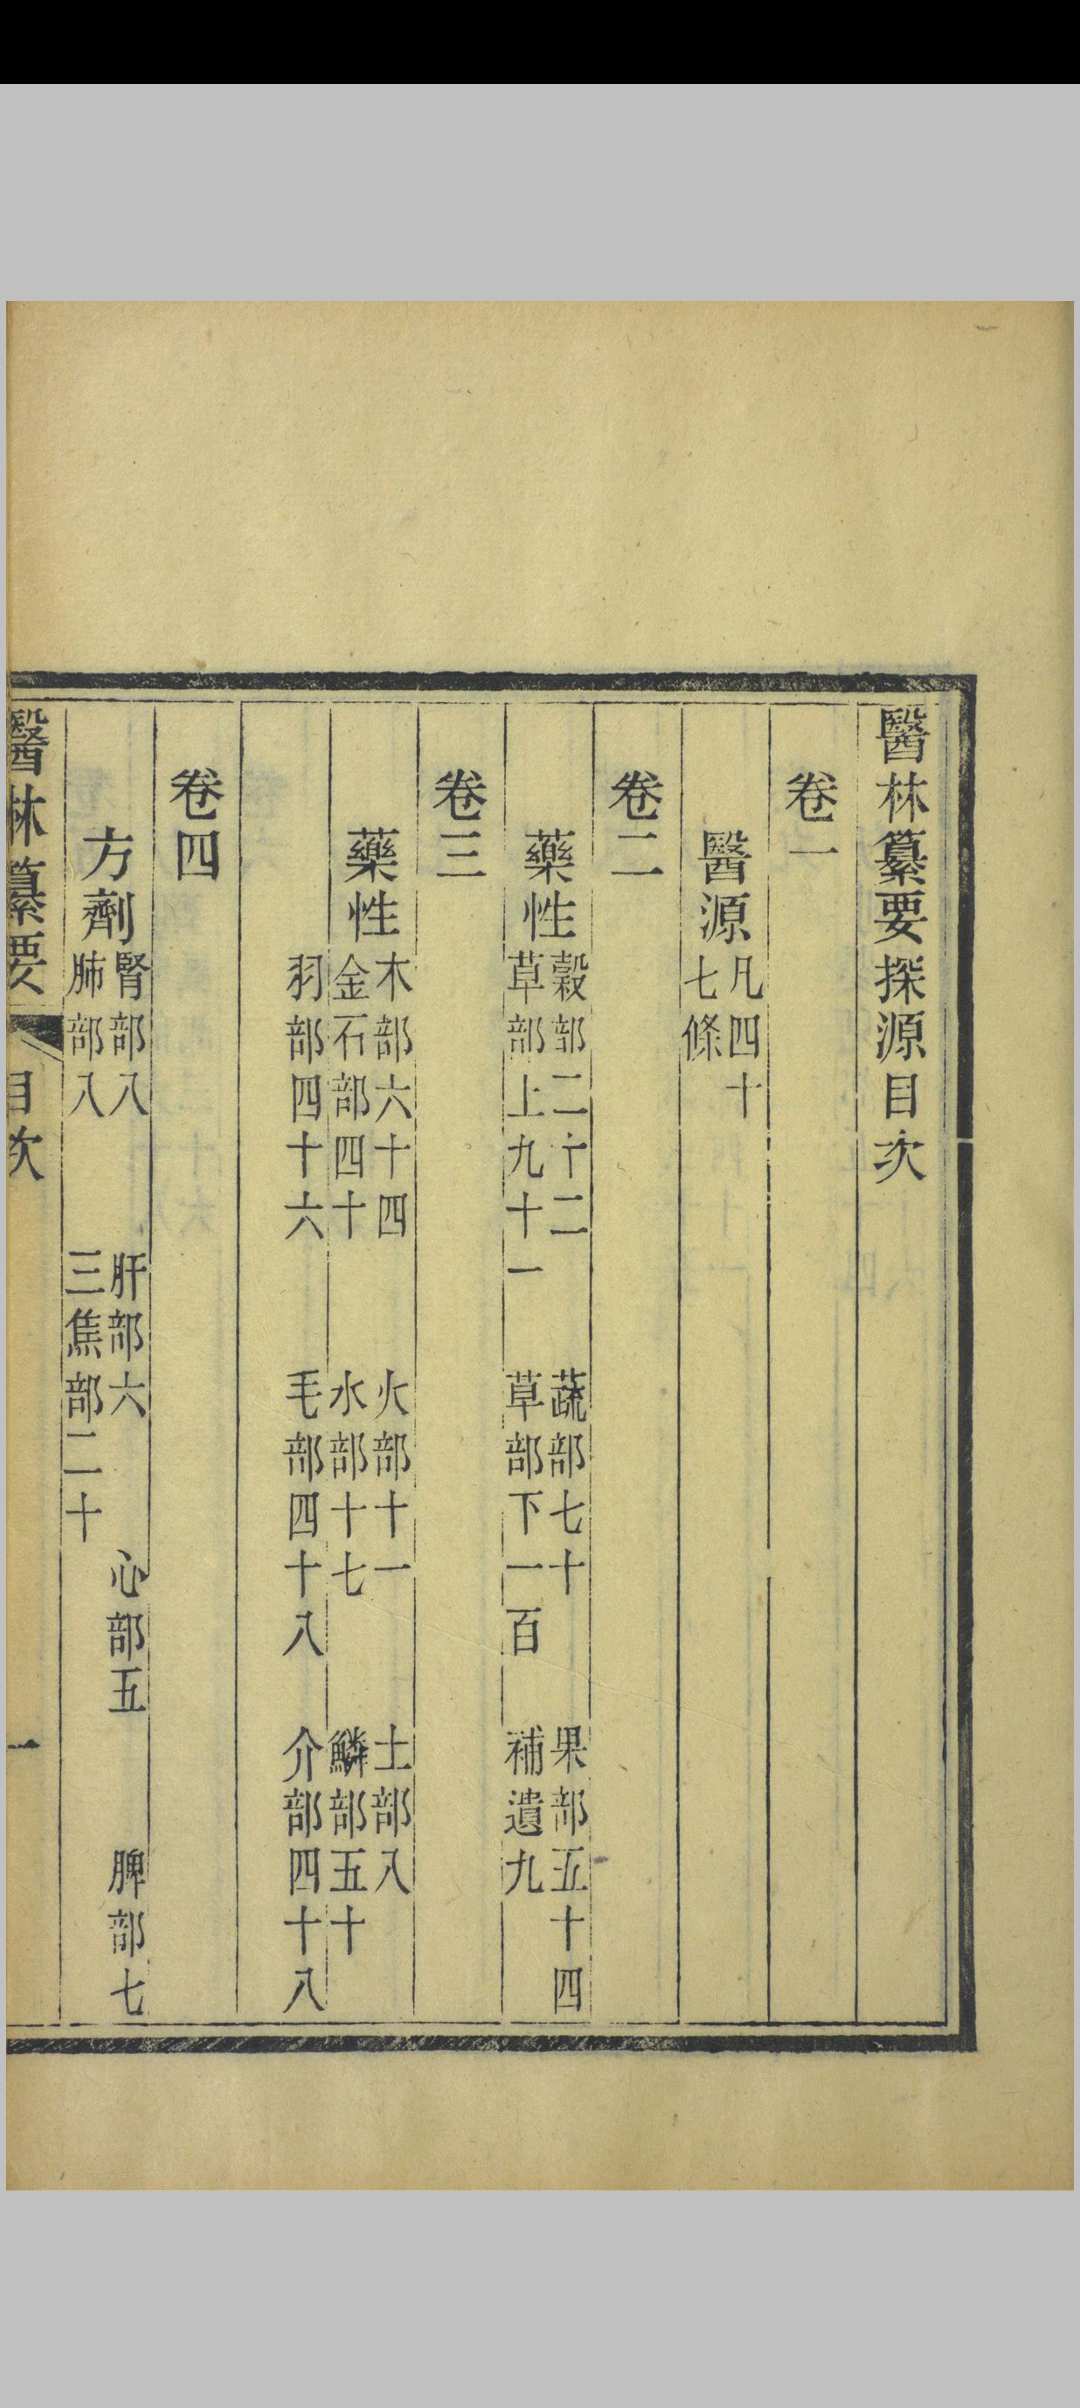 醫林纂要探源目次
卷一
醫源凡四十七條
卷二
藥性穀部二十二 蔬部七十 果部五十四
草部上九十一 草部下一百 補遺九
卷三
藥性木部六十四 火部十一 土部八
金石部四十 水部十七 鱗部五十
羽部四十六 毛部四十八 介部四十八
卷四
方劑腎部八 肝部六 心部五 脾部七
肺部八 三焦部二十
醫林纂要 目次 一